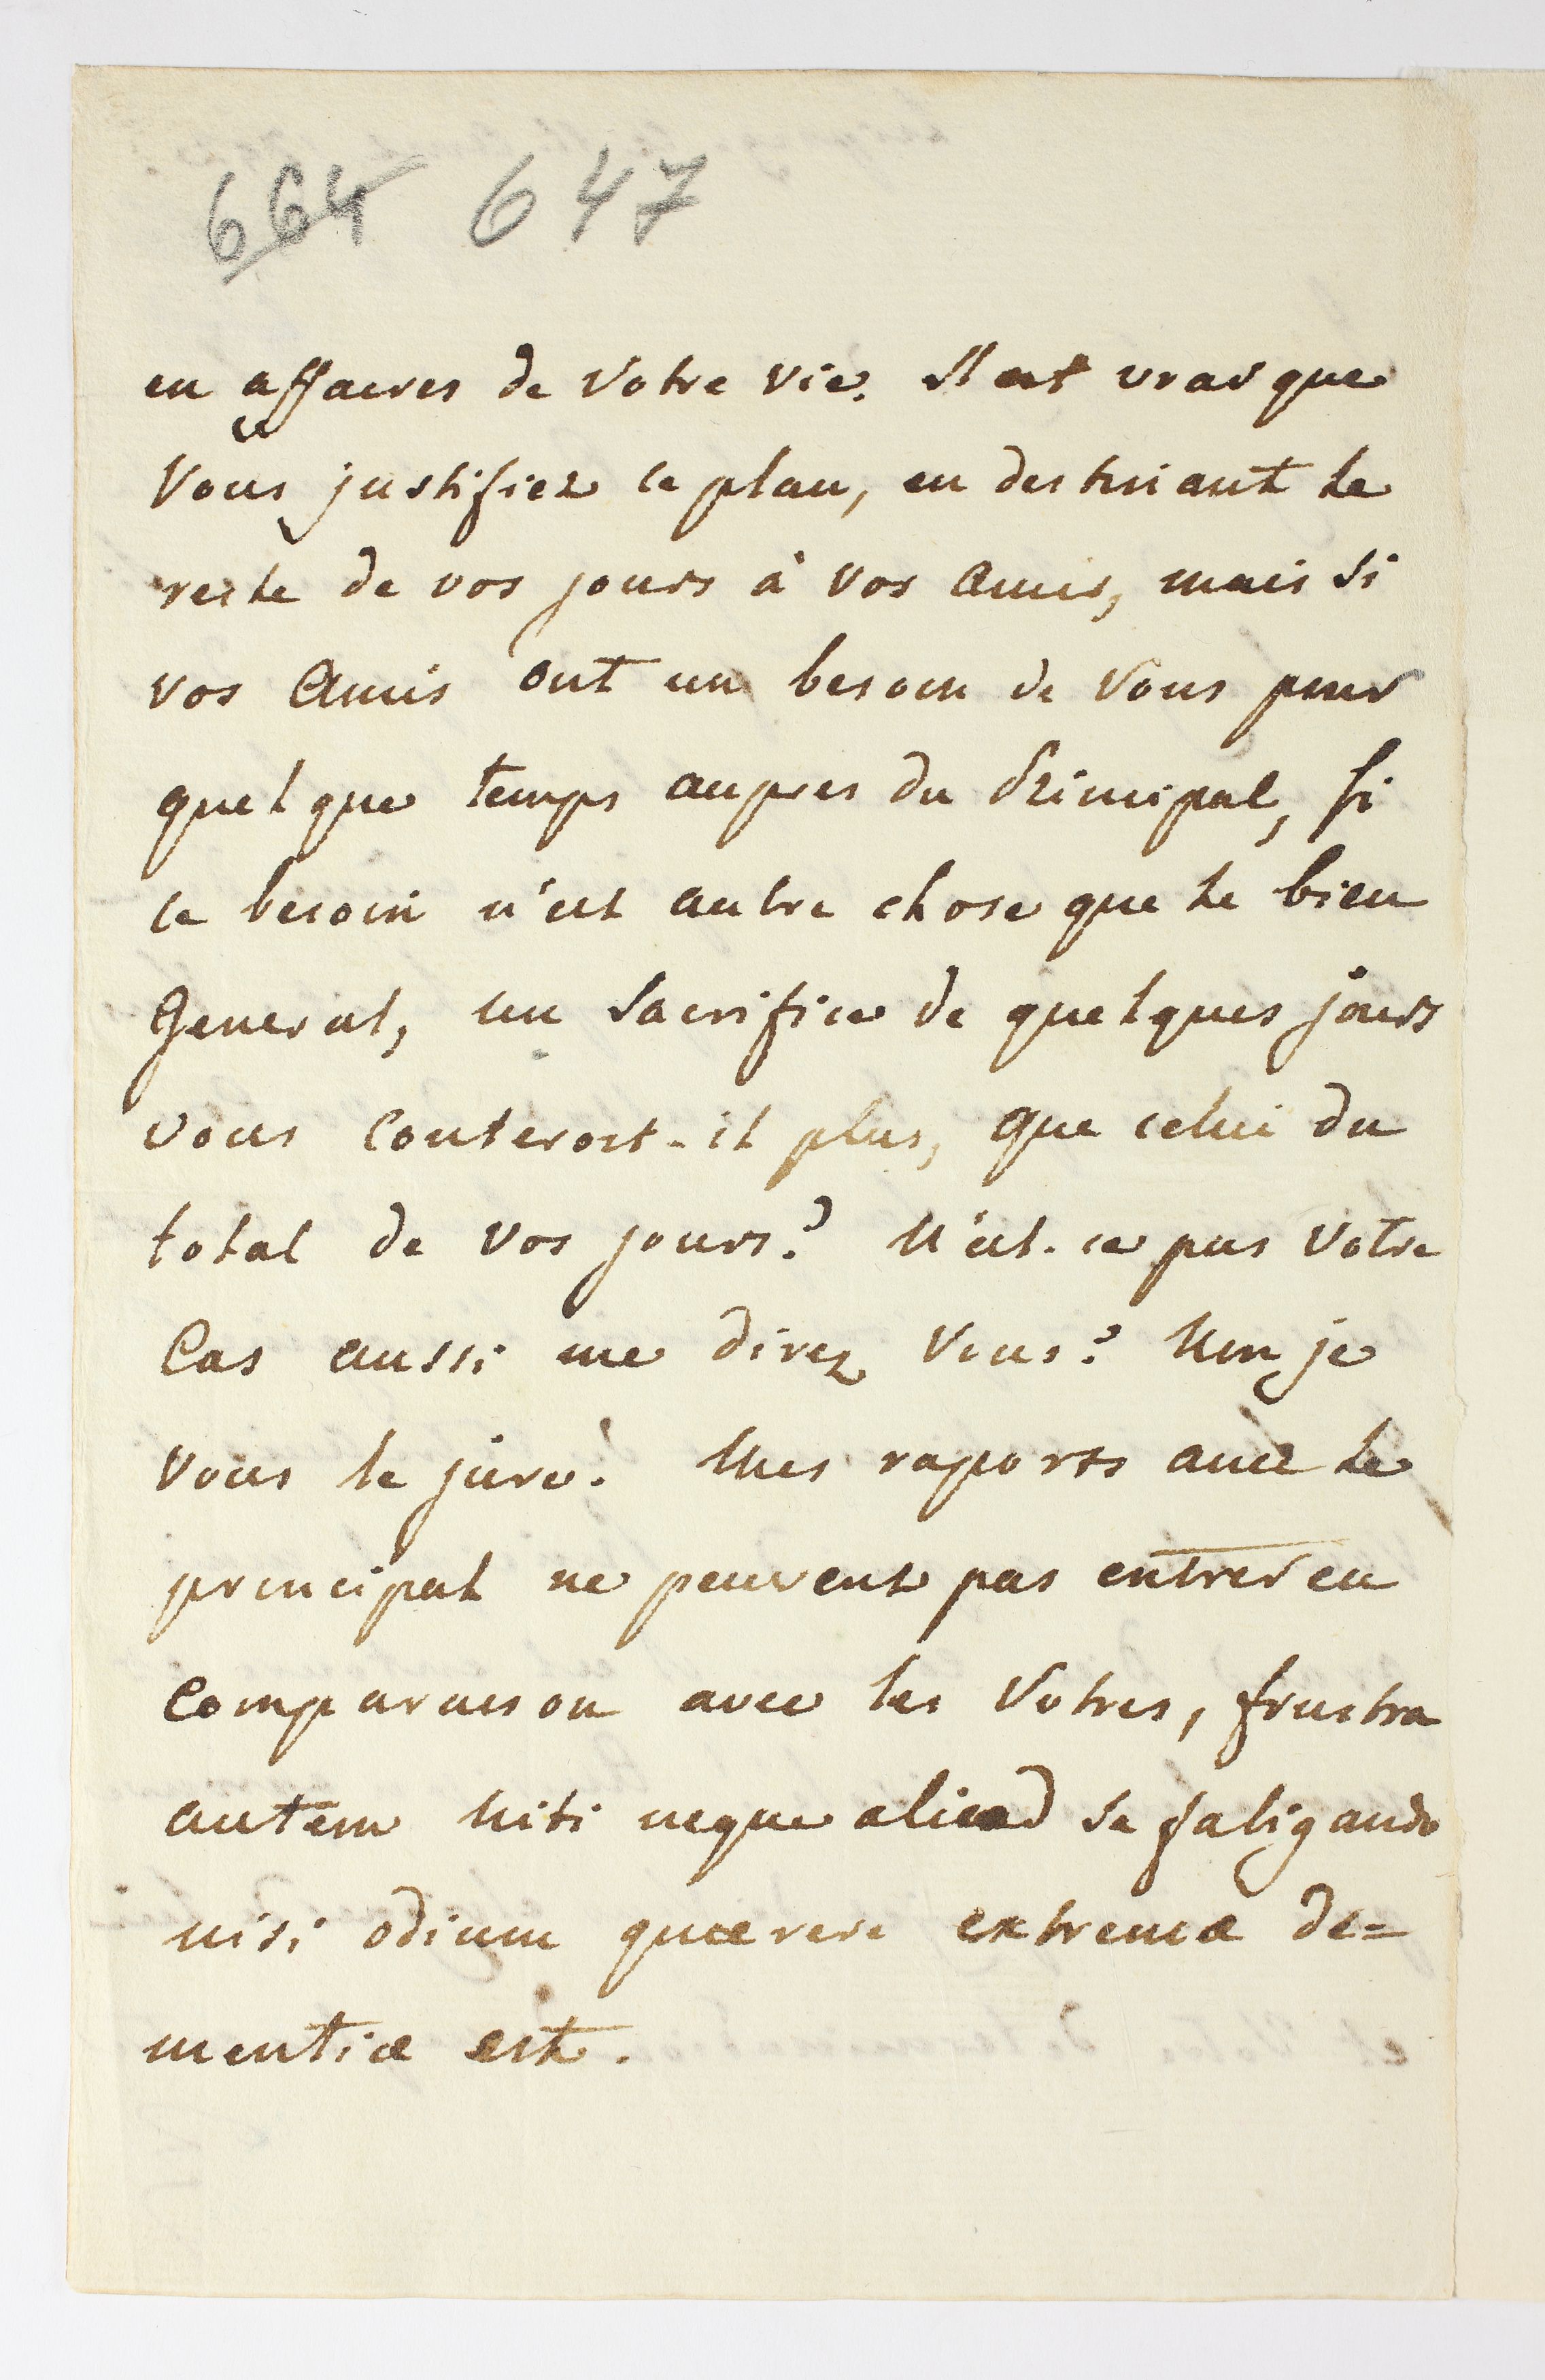 664 647
en affaires de votre vie. Il est vrai que
Vous justifiez ce plan, en destinant le
reste de vos jours à vos amis, mais si
vos Amis ont un besoin de Vous pour
quelque temps aupres du Principal, si
ce besoin n'est autre chose que le bien
General, un Sacrifice de quelques jours
vous Couteroit-il plus, que celui du
total de vos jours? N'est-ce pas Votre
Cas aussi me direz Vous? Non, je
vous le jure! Mes raports avec le
principal ne peuvent pas entrer en
Comparaison avec les Votres, frustra
autem niti neque aliud se fatigando
nisi odium quaerere extremae de=
mentiae est.